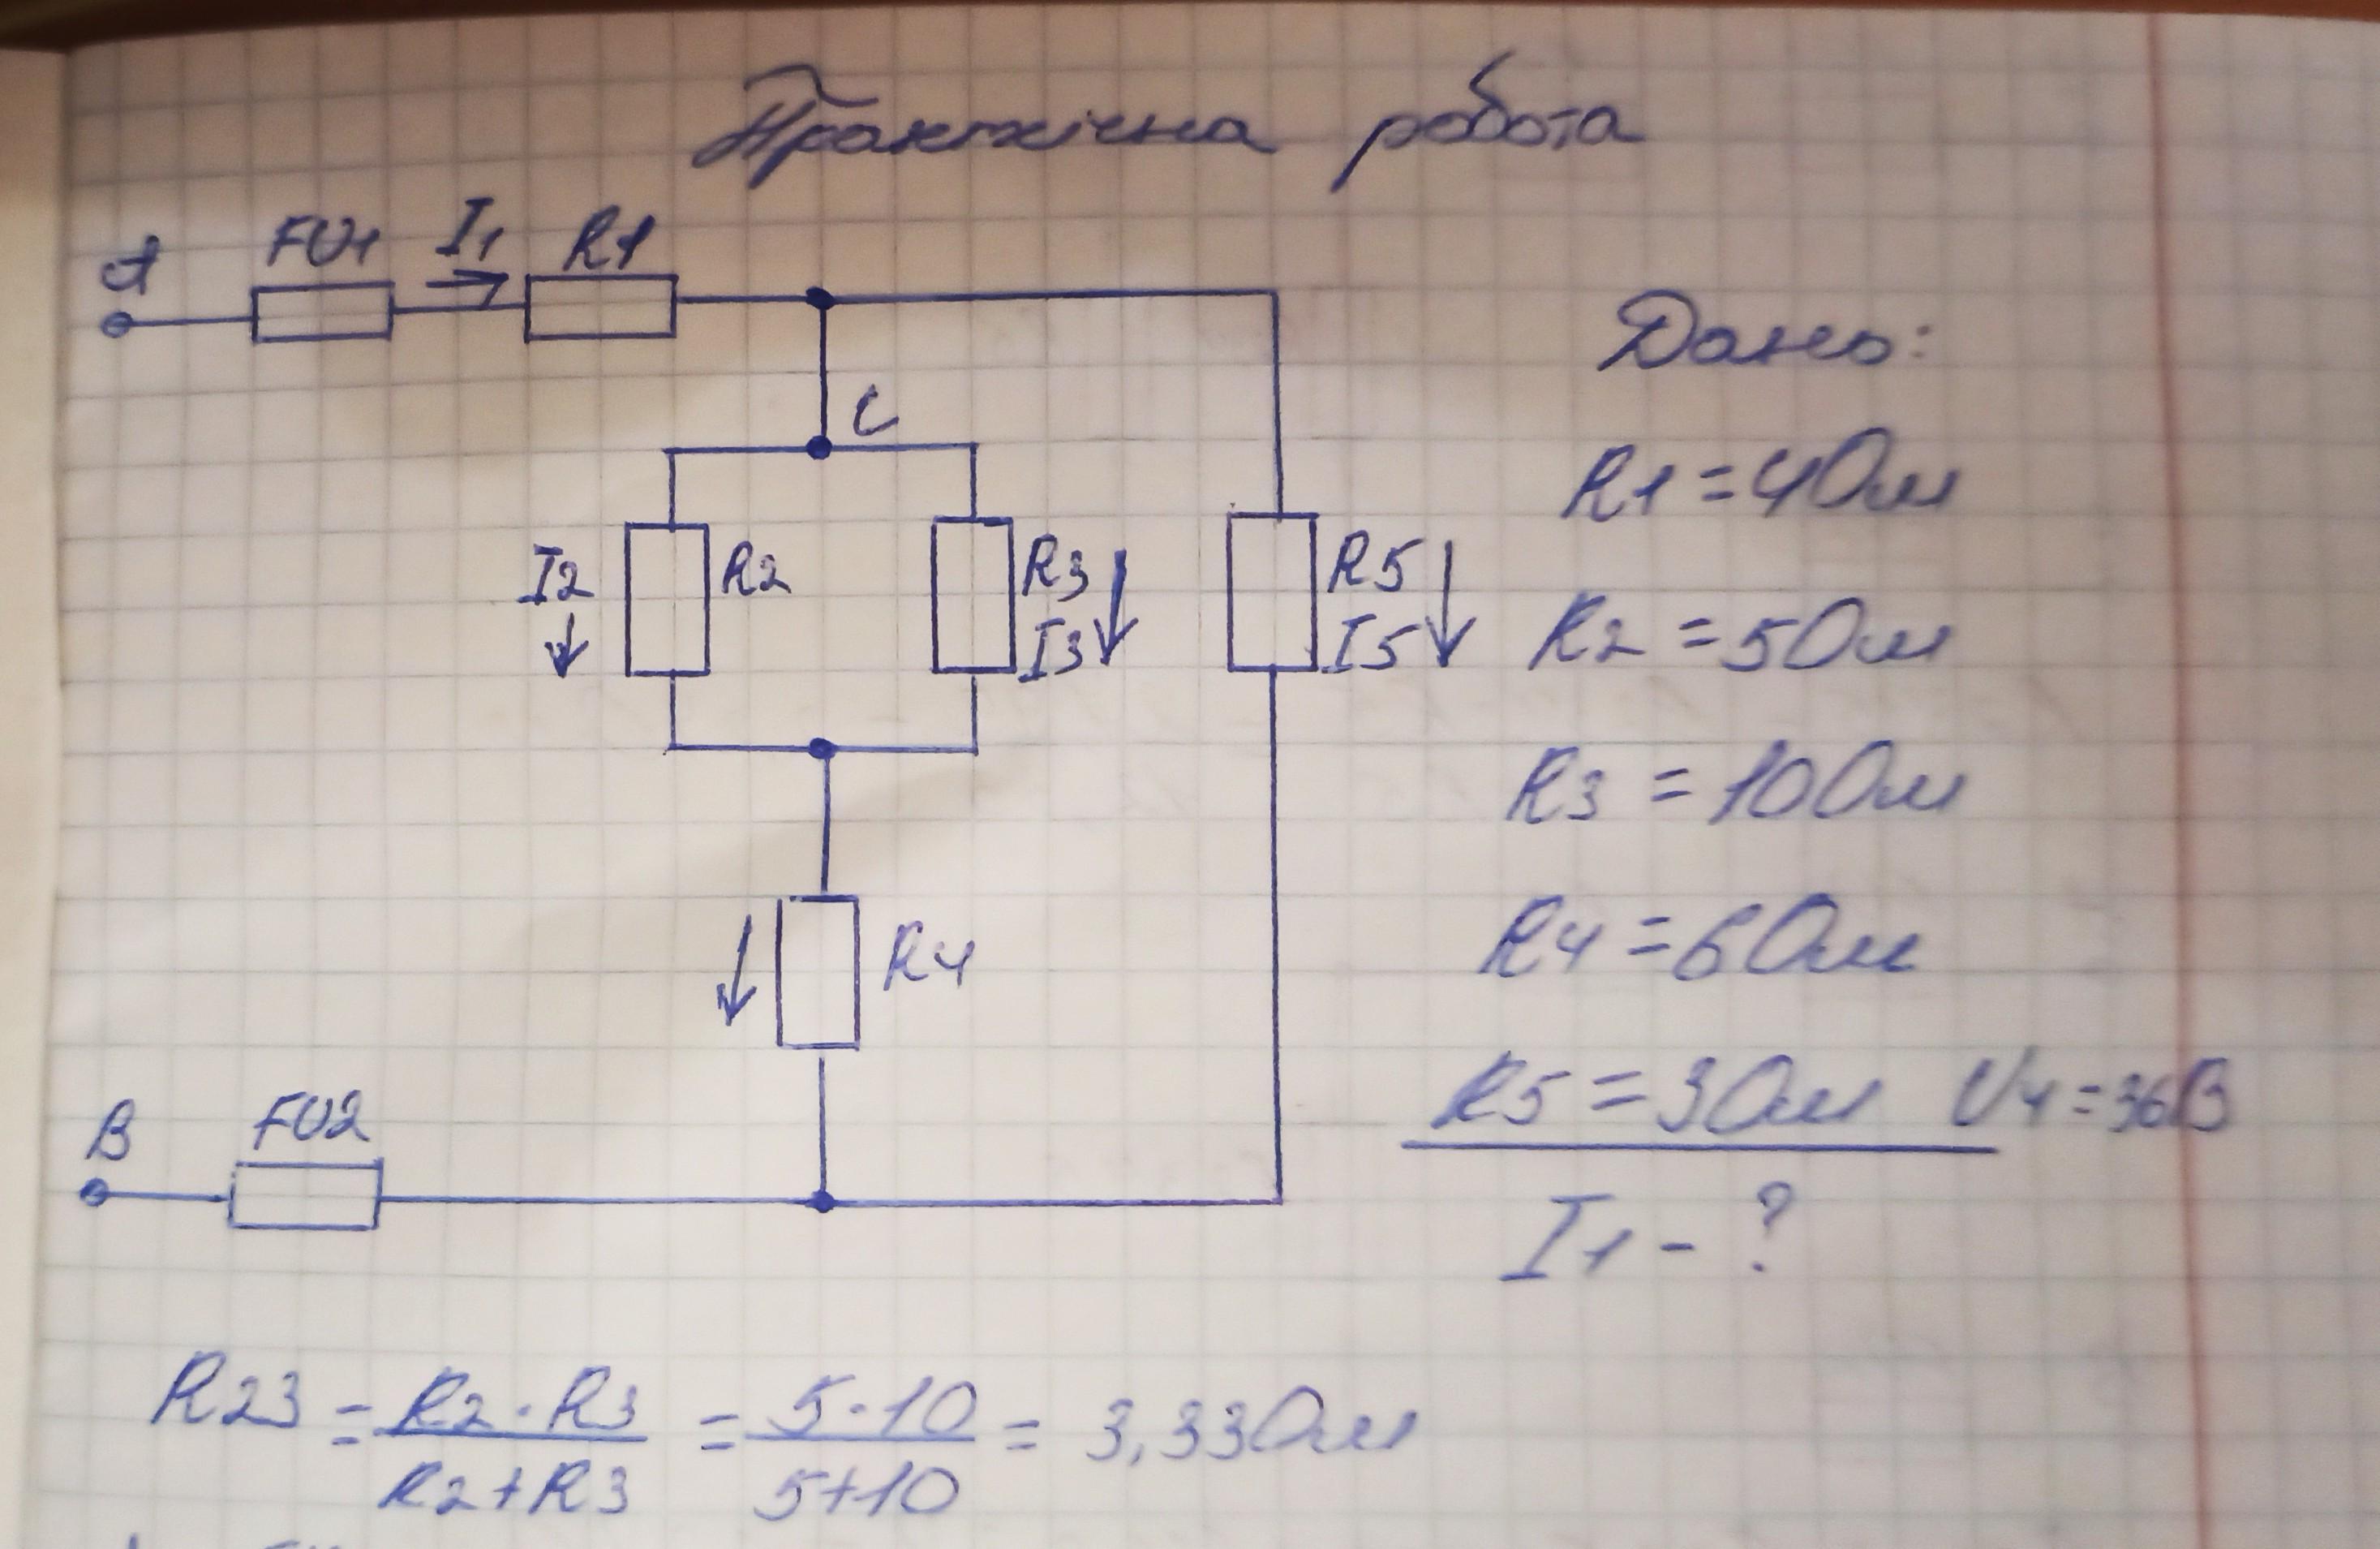 Практична робота
A FU1 I1 R1
C
I2 R2 R3 I3 R5 I5
R4
B FU2
Дано:
R1 = 4Ом
R2 = 5Ом
R3 = 10Ом
R4 = 6Ом
R5 = 3Ом U4 = 36В
I1 - ?
R23 = R2·R3 / R2+R3 = 5·10 / 5+10 = 3,33Ом